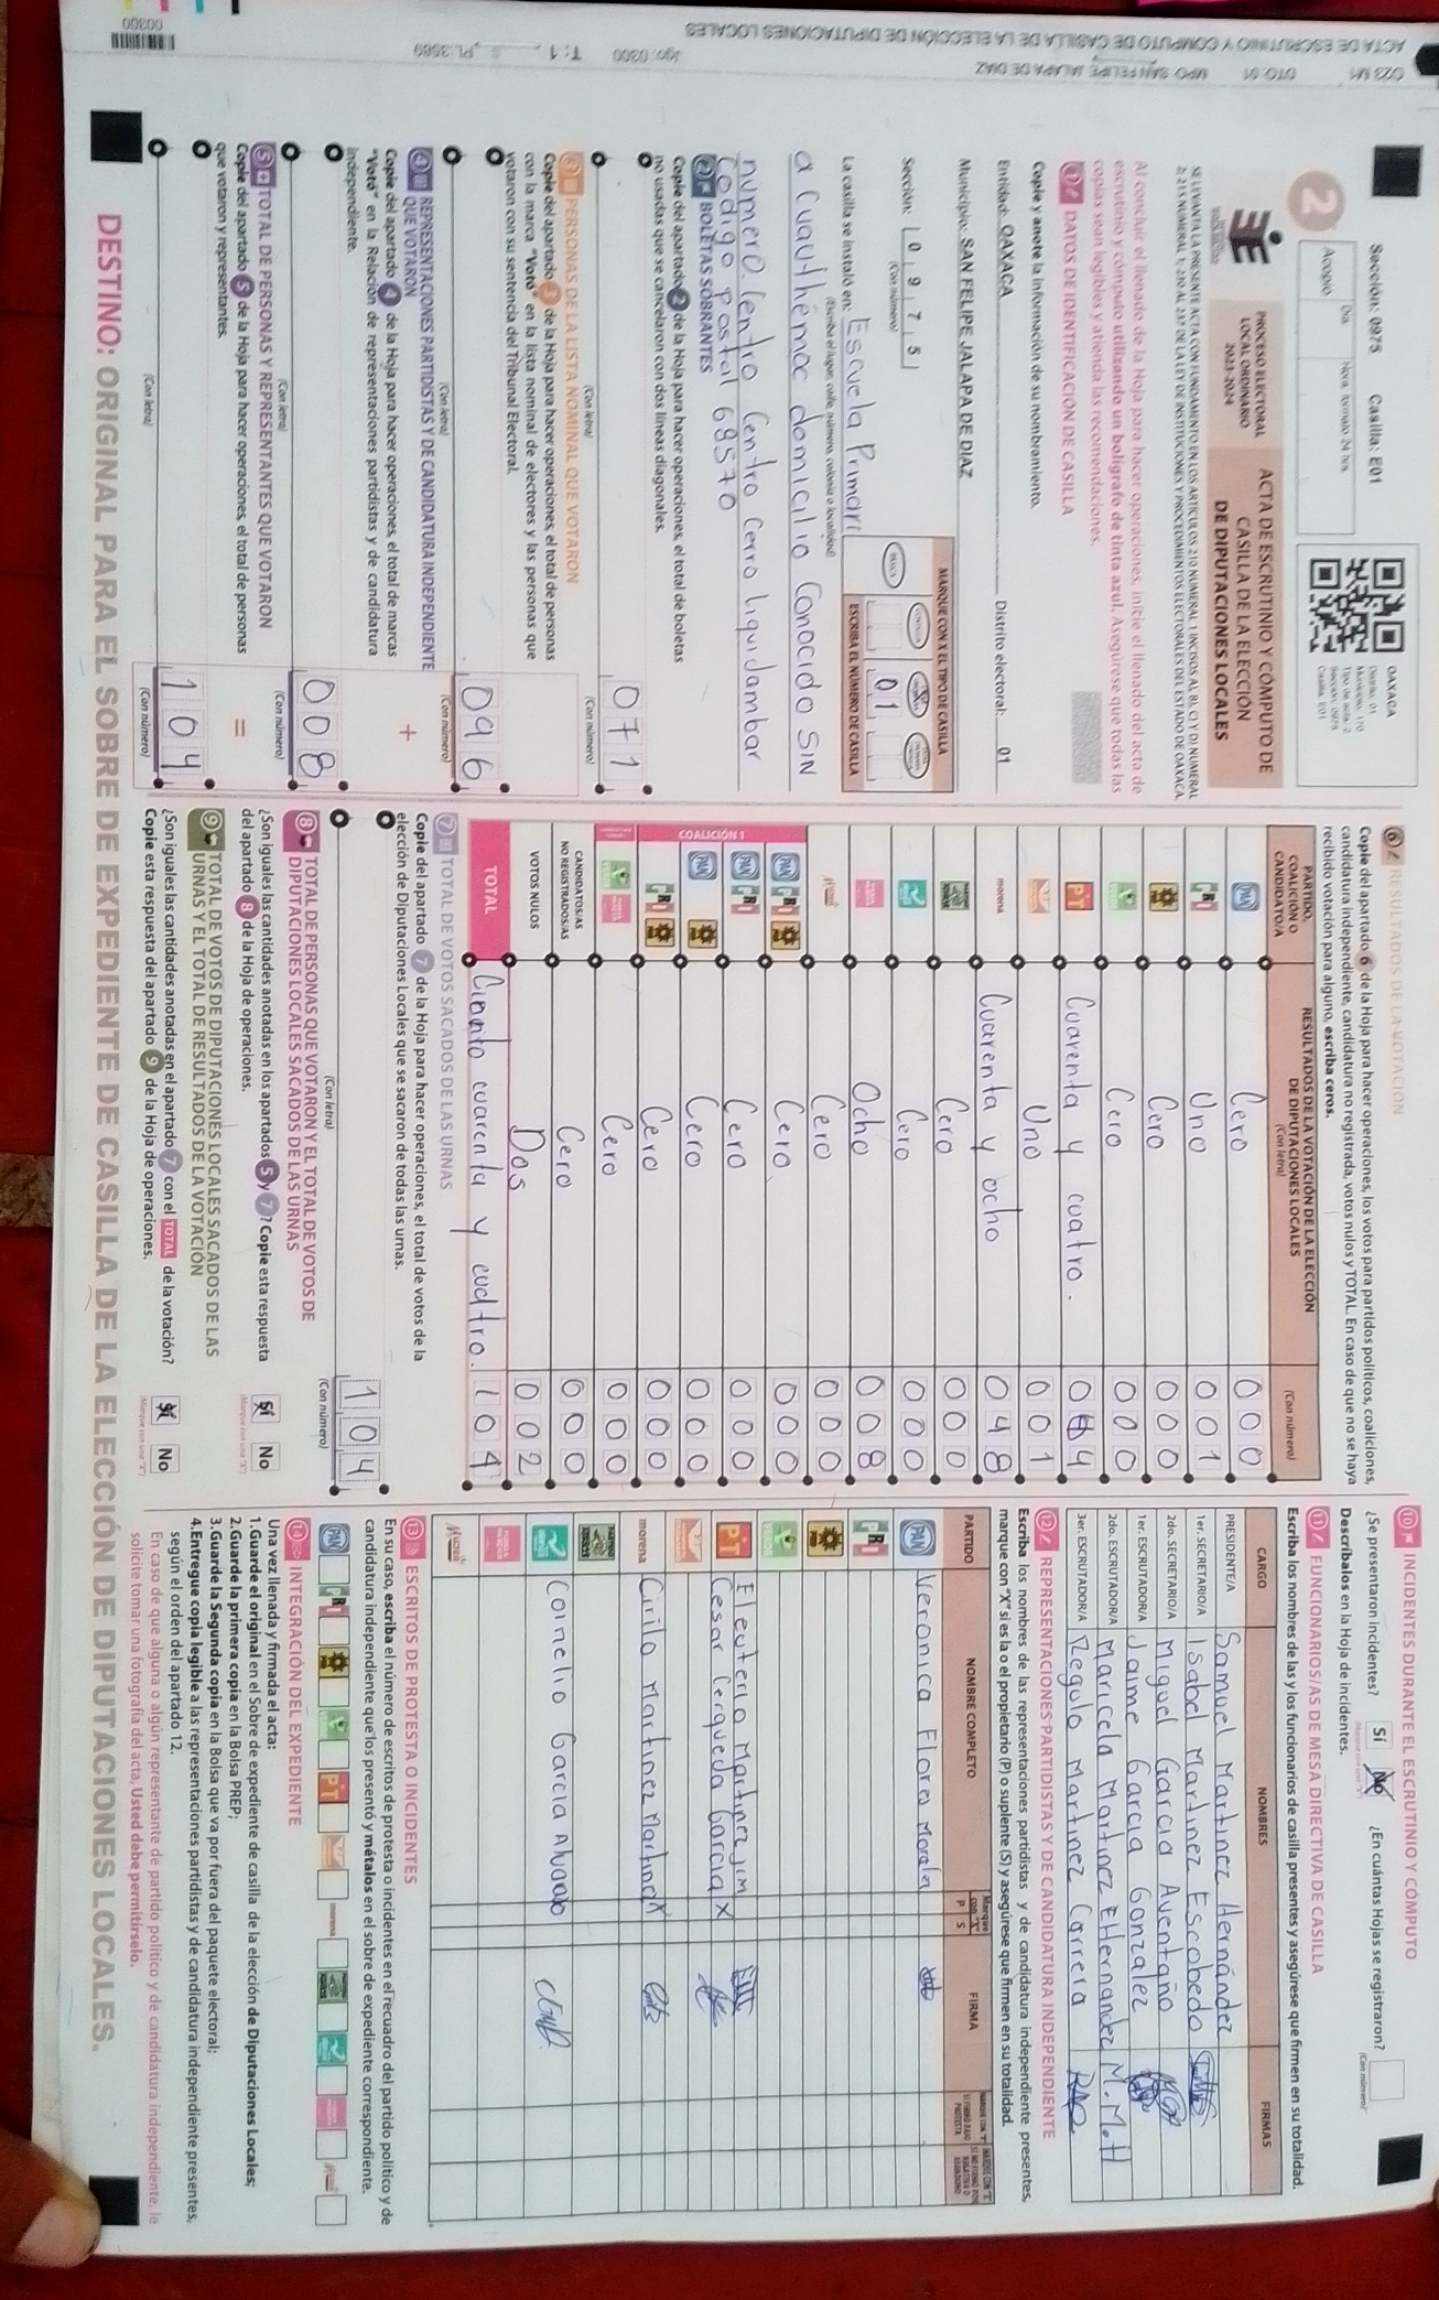 023 M1 DTO. 01 MPO. SAN FELIPE JALAPA DE DIAZ
ACTA DE ESCRUTINIO Y CÓMPUTO DE CASILLA DE LA ELECCIÓN DE DIPUTACIONES LOCALES
Jgo. 0300 T: 1
PL: 3589
00300
Sección: 0975 Casilla: E01
2
Acopio
Día
Hora, formato 24 hrs.
OAXACA
Distrito: 01
Municipio: 170
Tipo de acta: 2
Sección: 0975
Casilla: E01
PROCESO ELECTORAL
LOCAL ORDINARIO
2023-2024
ACTA DE ESCRUTINIO Y CÓMPUTO DE
CASILLA DE LA ELECCIÓN
DE DIPUTACIONES LOCALES
SE LEVANTA LA PRESENTE ACTA CON FUNDAMENTO EN LOS ARTÍCULOS 210 NUMERAL 1 INCISOS A), B), C) Y D) NUMERAL
2; 215 NUMERAL 1; 230 AL 237 DE LA LEY DE INSTITUCIONES Y PROCEDIMIENTOS ELECTORALES DEL ESTADO DE OAXACA.
Al concluir el llenado de la Hoja para hacer operaciones, inicie el llenado del acta de
escrutinio y cómputo utilizando un bolígrafo de tinta azul. Asegúrese que todas las
copias sean legibles y atienda las recomendaciones.
1 DATOS DE IDENTIFICACIÓN DE CASILLA
Copie y anote la información de su nombramiento.
Entidad: OAXACA Distrito electoral: 01
Municipio: SAN FELIPE JALAPA DE DIAZ
Sección: 0 9 7 5
(Con número)
MARQUE CON X EL TIPO DE CASILLA
BÁSICA
ESCRIBA EL NÚMERO DE CASILLA
01
La casilla se instaló en: Escuela Primari
(Escriba el lugar, calle, número, colonia o localidad)
a Cuauthémoc domicilio Conocido SIN
numero. Centro Centro Cerro liquidambar
Codigo Postal 68570
2 BOLETAS SOBRANTES
Copie del apartado 2 de la Hoja para hacer operaciones, el total de boletas
no usadas que se cancelaron con dos líneas diagonales.
071
(Con letra) (Con número)
3 PERSONAS DE LA LISTA NOMINAL QUE VOTARON
Copie del apartado 3 de la Hoja para hacer operaciones, el total de personas
con la marca "Votó" en la lista nominal de electores y las personas que
votaron con su sentencia del Tribunal Electoral.
096
(Con letra) (Con número)
4 REPRESENTACIONES PARTIDISTAS Y DE CANDIDATURA INDEPENDIENTE
QUE VOTARON
Copie del apartado 4 de la Hoja para hacer operaciones, el total de marcas
"Votó" en la Relación de representaciones partidistas y de candidatura
independiente.
+
008
(Con letra) (Con número)
5 TOTAL DE PERSONAS Y REPRESENTANTES QUE VOTARON
Copie del apartado 5 de la Hoja para hacer operaciones, el total de personas
que votaron y representantes.
=
104
(Con letra) (Con número)
6 RESULTADOS DE LA VOTACIÓN
Copie del apartado 6 de la Hoja para hacer operaciones, los votos para partidos políticos, coaliciones,
candidatura independiente, candidatura no registrada, votos nulos y TOTAL. En caso de que no se haya
recibido votación para alguno, escriba ceros.
PARTIDO,
COALICIÓN O
CANDIDATO/A
RESULTADOS DE LA VOTACIÓN DE LA ELECCIÓN
DE DIPUTACIONES LOCALES
(Con letra)
(Con número)
PAN Cero 000
PRI Uno 001
PRD Cero 000
VERDE Cero 000
PT Cuarenta y cuatro. 044
Uno 001
morena Cuarenta y ocho 048
Cero 000
Cero 000
Ocho 008
Cero 000
COALICIÓN 1
PAN PRI PRD Cero 000
PAN PRI Cero 000
PAN PRD Cero 000
PRI PRD Cero 000
Cero 000
CANDIDATOS/AS
NO REGISTRADOS/AS
Cero 000
VOTOS NULOS Dos 002
TOTAL Ciento cuarenta y cuatro. 104
7 TOTAL DE VOTOS SACADOS DE LAS URNAS
Copie del apartado 7 de la Hoja para hacer operaciones, el total de votos de la
elección de Diputaciones Locales que se sacaron de todas las urnas.
104
(Con letra) (Con número)
8 TOTAL DE PERSONAS QUE VOTARON Y EL TOTAL DE VOTOS DE
DIPUTACIONES LOCALES SACADOS DE LAS URNAS
¿Son iguales las cantidades anotadas en los apartados 5 y 7? Copie esta respuesta
del apartado 8 de la Hoja de operaciones.
Sí No
(Marque con una "X")
9 TOTAL DE VOTOS DE DIPUTACIONES LOCALES SACADOS DE LAS
URNAS Y EL TOTAL DE RESULTADOS DE LA VOTACIÓN
¿Son iguales las cantidades anotadas en el apartado 7 con el TOTAL de la votación?
Copie esta respuesta del apartado 9 de la Hoja de operaciones.
Sí No
(Marque con una "X")
10 INCIDENTES DURANTE EL ESCRUTINIO Y CÓMPUTO
¿Se presentaron incidentes? Sí No ¿En cuántas Hojas se registraron?
(Marque con una "X") (Con número)
Descríbalos en la Hoja de incidentes.
11 FUNCIONARIOS/AS DE MESA DIRECTIVA DE CASILLA
Escriba los nombres de las y los funcionarios de casilla presentes y asegúrese que firmen en su totalidad.
CARGO NOMBRES FIRMAS
PRESIDENTE/A Samuel Martinez Hernández
1er. SECRETARIO/A Isabel Martinez Escobedo
2do. SECRETARIO/A Miguel Garcia Aventaño
1er. ESCRUTADOR/A Jaime Garcia Gonzalez
2do. ESCRUTADOR/A Maricela Martinez EHernandez M.M.H
3er. ESCRUTADOR/A Regulo Martinez Carrera
12 REPRESENTACIONES PARTIDISTAS Y DE CANDIDATURA INDEPENDIENTE
Escriba los nombres de las representaciones partidistas y de candidatura independiente presentes,
marque con "X" si es la o el propietario (P) o suplente (S) y asegúrese que firmen en su totalidad.
PARTIDO NOMBRE COMPLETO Marque con "X" P S FIRMA
PAN Veronica Flores Morales
PRI
PRD
VERDE
PT Eleuterio Martinez Jim
Cesar Cerqueda Garcia X
morena Cirilo Martinez Martinez X
Cornelio Garcia Alvarado
13 ESCRITOS DE PROTESTA O INCIDENTES
En su caso, escriba el número de escritos de protesta o incidentes en el recuadro del partido político y de
candidatura independiente que los presentó y métalos en el sobre de expediente correspondiente.
PAN PRI PRD VERDE PT morena
14 INTEGRACIÓN DEL EXPEDIENTE
Una vez llenada y firmada el acta:
1.Guarde el original en el Sobre de expediente de casilla de la elección de Diputaciones Locales;
2.Guarde la primera copia en la Bolsa PREP;
3.Guarde la Segunda copia en la Bolsa que va por fuera del paquete electoral;
4.Entregue copia legible a las representaciones partidistas y de candidatura independiente presentes,
según el orden del apartado 12.
En caso de que alguna o algún representante de partido político y de candidatura independiente, le
solicite tomar una fotografía del acta, Usted debe permitírselo.
DESTINO: ORIGINAL PARA EL SOBRE DE EXPEDIENTE DE CASILLA DE LA ELECCIÓN DE DIPUTACIONES LOCALES.